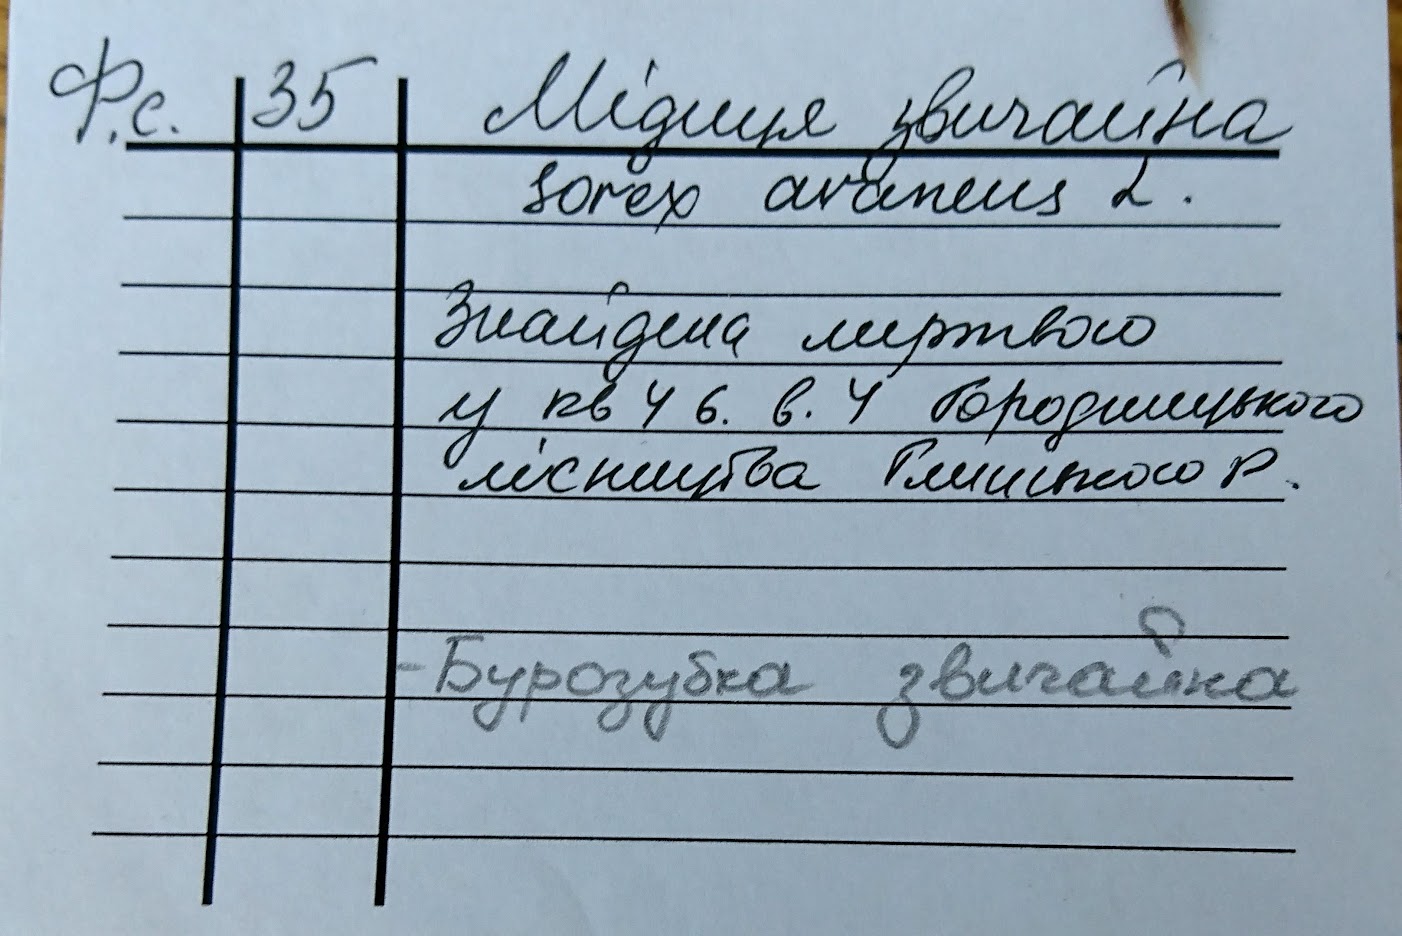 Ф.с. 35 Мідиця звичайна
Sorex araneus L.
Знайдена мертвою
у кв 46. в. 4 Городницького
лісництва
- Бурозубка звичайна